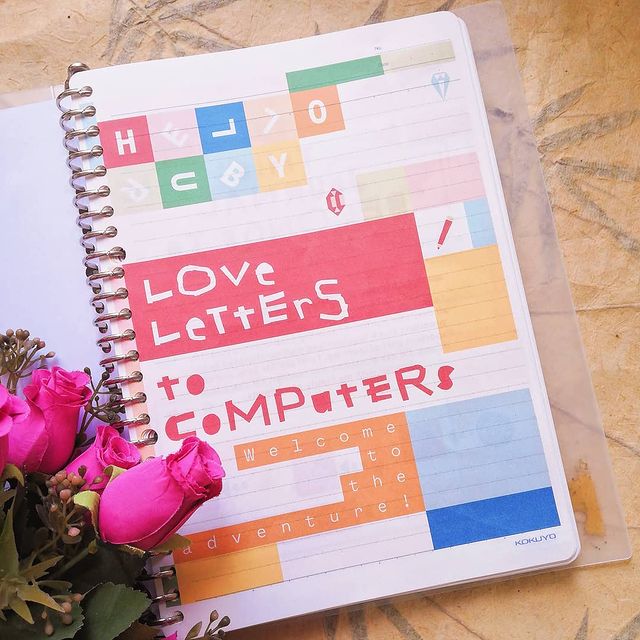 No.
HELLO
RUBY
LOVe
LeTtErS
to
COMPuteRs
Welcome
to
the
adventure!
KOKUYO